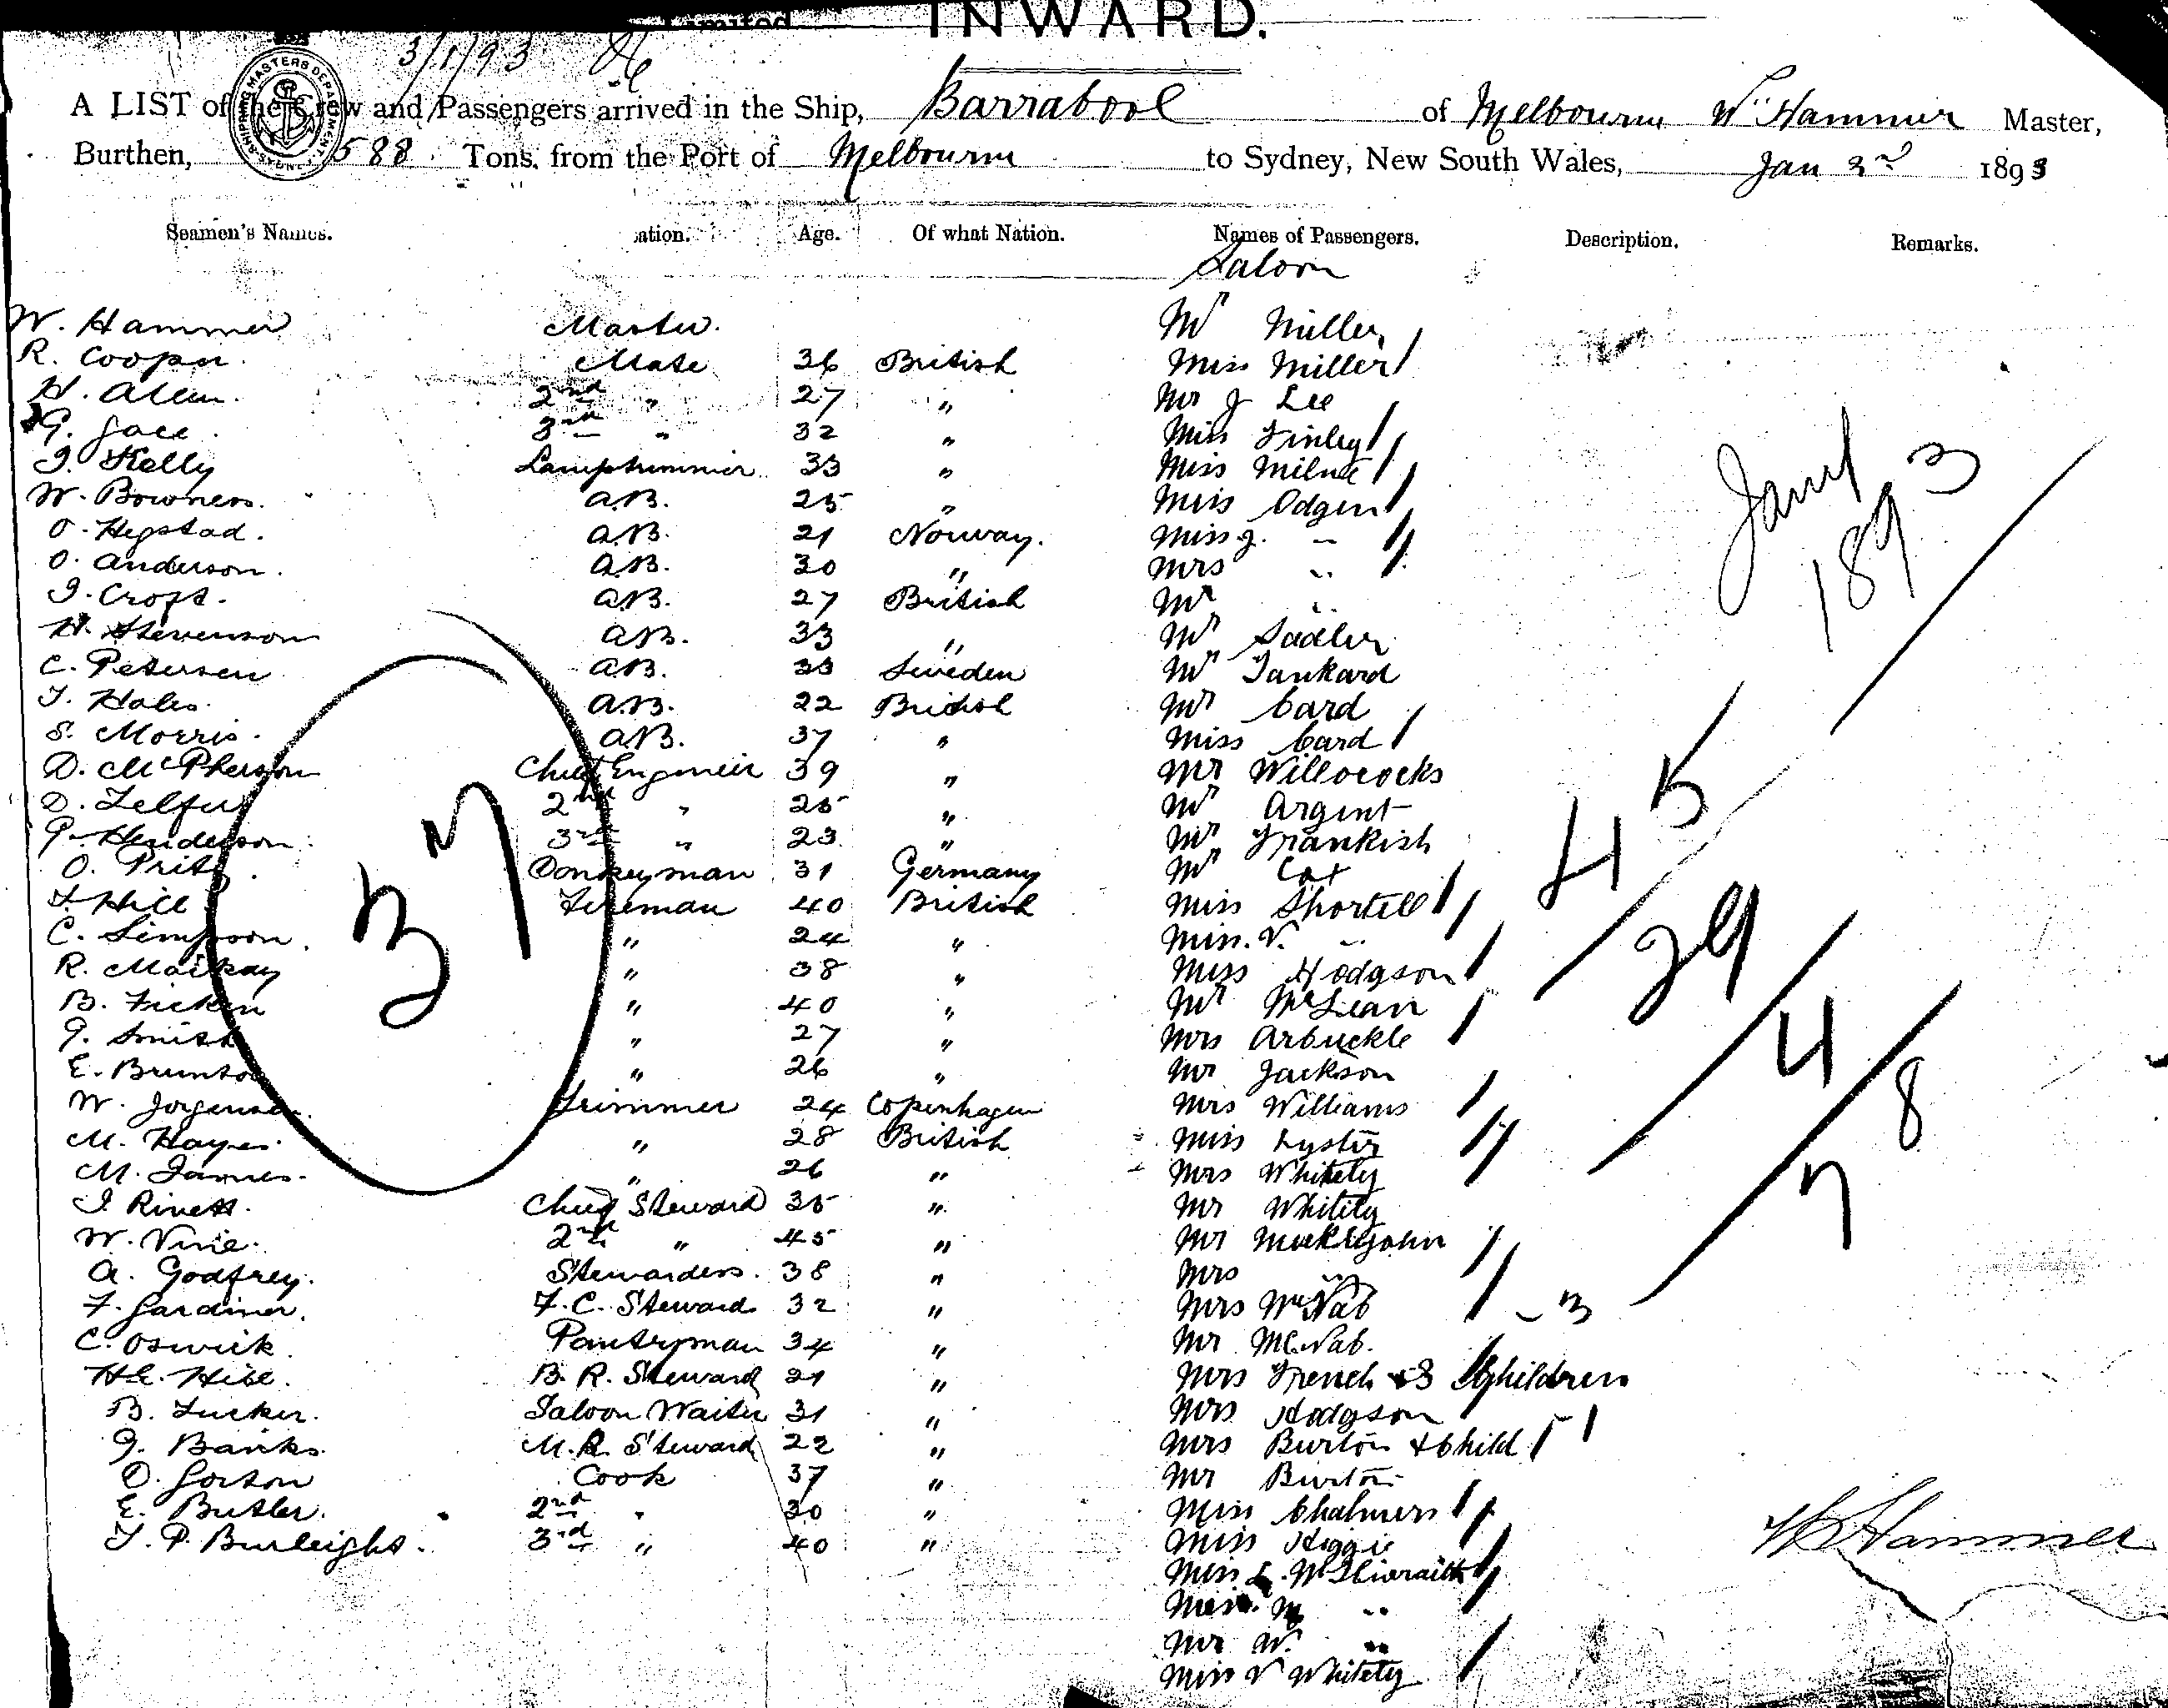 Limited
INWARD.
3/1/93
SHIPPING MASTERS DEPARTMENT
A LIST of the Crew and Passengers arrived in the Ship, Barrabool of Melbourne Wm Hammer Master,
Burthen, 588 Tons, from the Port of Melbourne to Sydney, New South Wales, Jan 3rd 1893
Seamen's Names. ation. Age. Of what Nation. Names of Passengers. Description. Remarks.
Saloon
W. Hammer Master. Mr Miller
R. Cooper. Mate 36 British Miss Miller
H. Allen. 2nd " 27 " Mr J Lee
G. 3rd " 32 " Miss Finley
J. Kelly Lamptrimmer 33 " Miss Milne
W. Bowners. A.B. 25 " Miss Odgen
O. Hegstad. A.B. 21 Norway. Miss J. "
O. Anderson. A.B. 30 " Mrs "
J. Croft. A.B. 27 British Mr "
H. Stevenson A.B. 33 " Mr Sadler
C. Petersen A.B. 33 Sweden Mr Tankard
T. Hales. A.B. 22 British Mr Card
S. Morris. A.B. 37 " Miss Card
D. McPherson Chief Engineer 39 " Mr Willococks
D. Telfer 2nd " 25 " Mr Argent
G. Henderson 3rd " 23 " Mr Frankish
O. Pritz Donkeyman 31 Germany Mr Cox
T. Hill Fireman 40 British Miss Shortell
C. Simpson. " 24 " Miss. V. "
R. Mackay " 38 " Miss Hodgson
B. Ficken " 40 " Mr McLean
G. Smith " 27 " Mrs Arbuckle
E. Brunton " 26 " Mr Jackson
W. Jorgensen. Trimmer 24 Copenhagen Mrs Williams
M. Hayes. " 28 British Miss Lyster
M. James. " 26 " Mrs Whitely
J. Rivett. Chief Steward 35 " Mr Whitely
W. Vine. 2nd " 45 " Mr Meiklejohn
A. Godfrey. Stewardess. 38 " Mrs "
F. Gardiner. F.C. Steward 32 " Mrs McNab
C. Oswick. Pantryman 34 " Mr McNab.
H.E. Hill. B.R. Steward 21 " Mrs French & 3 Children
B. Tucker. Saloon Waiter 31 " Mrs Hodgson
G. Banks. M.R. Steward 22 " Mrs Burton & Child
D. Gorton Cook 37 " Mr Burton
E. Butler. 2nd " 30 " Miss Chalmers
T. P. Burleigh. 3rd " 40 " Miss Higgie
Miss L. McIlwraith
Miss. M "
Mr W. "
Miss V Whitely
37
Jany 3
1893
45
29
4
8
7
3
W Hammer